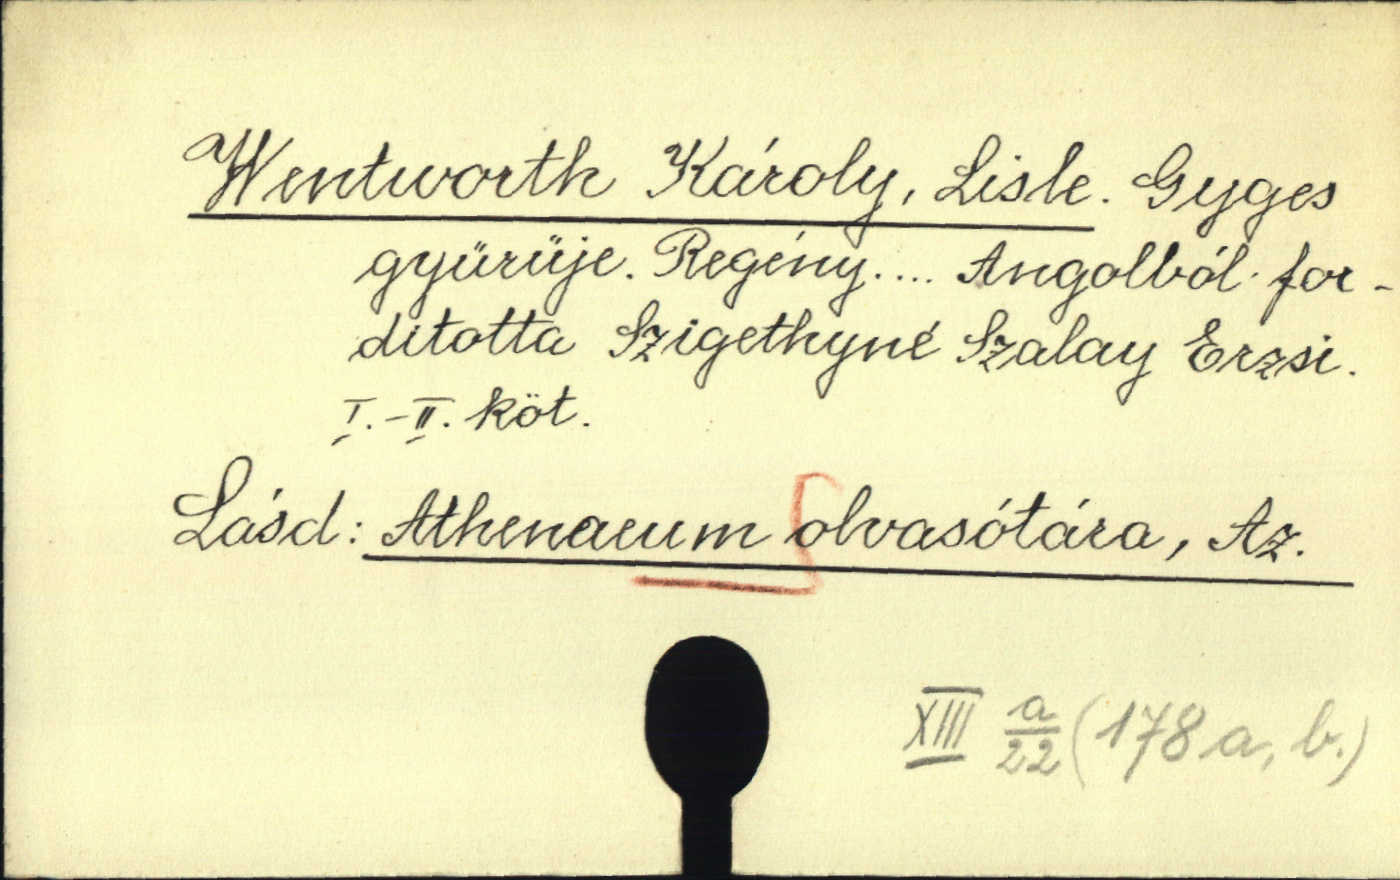 Wentworth Károly, Lisle. Gyges
gyürüje. Regény.... Angolból for-
ditotta Szigethyné Szalay Erzsi.
I.-II. köt.
Lásd: Athenaeum olvasótára, Az.
XIII a/22 (178 a, b.)